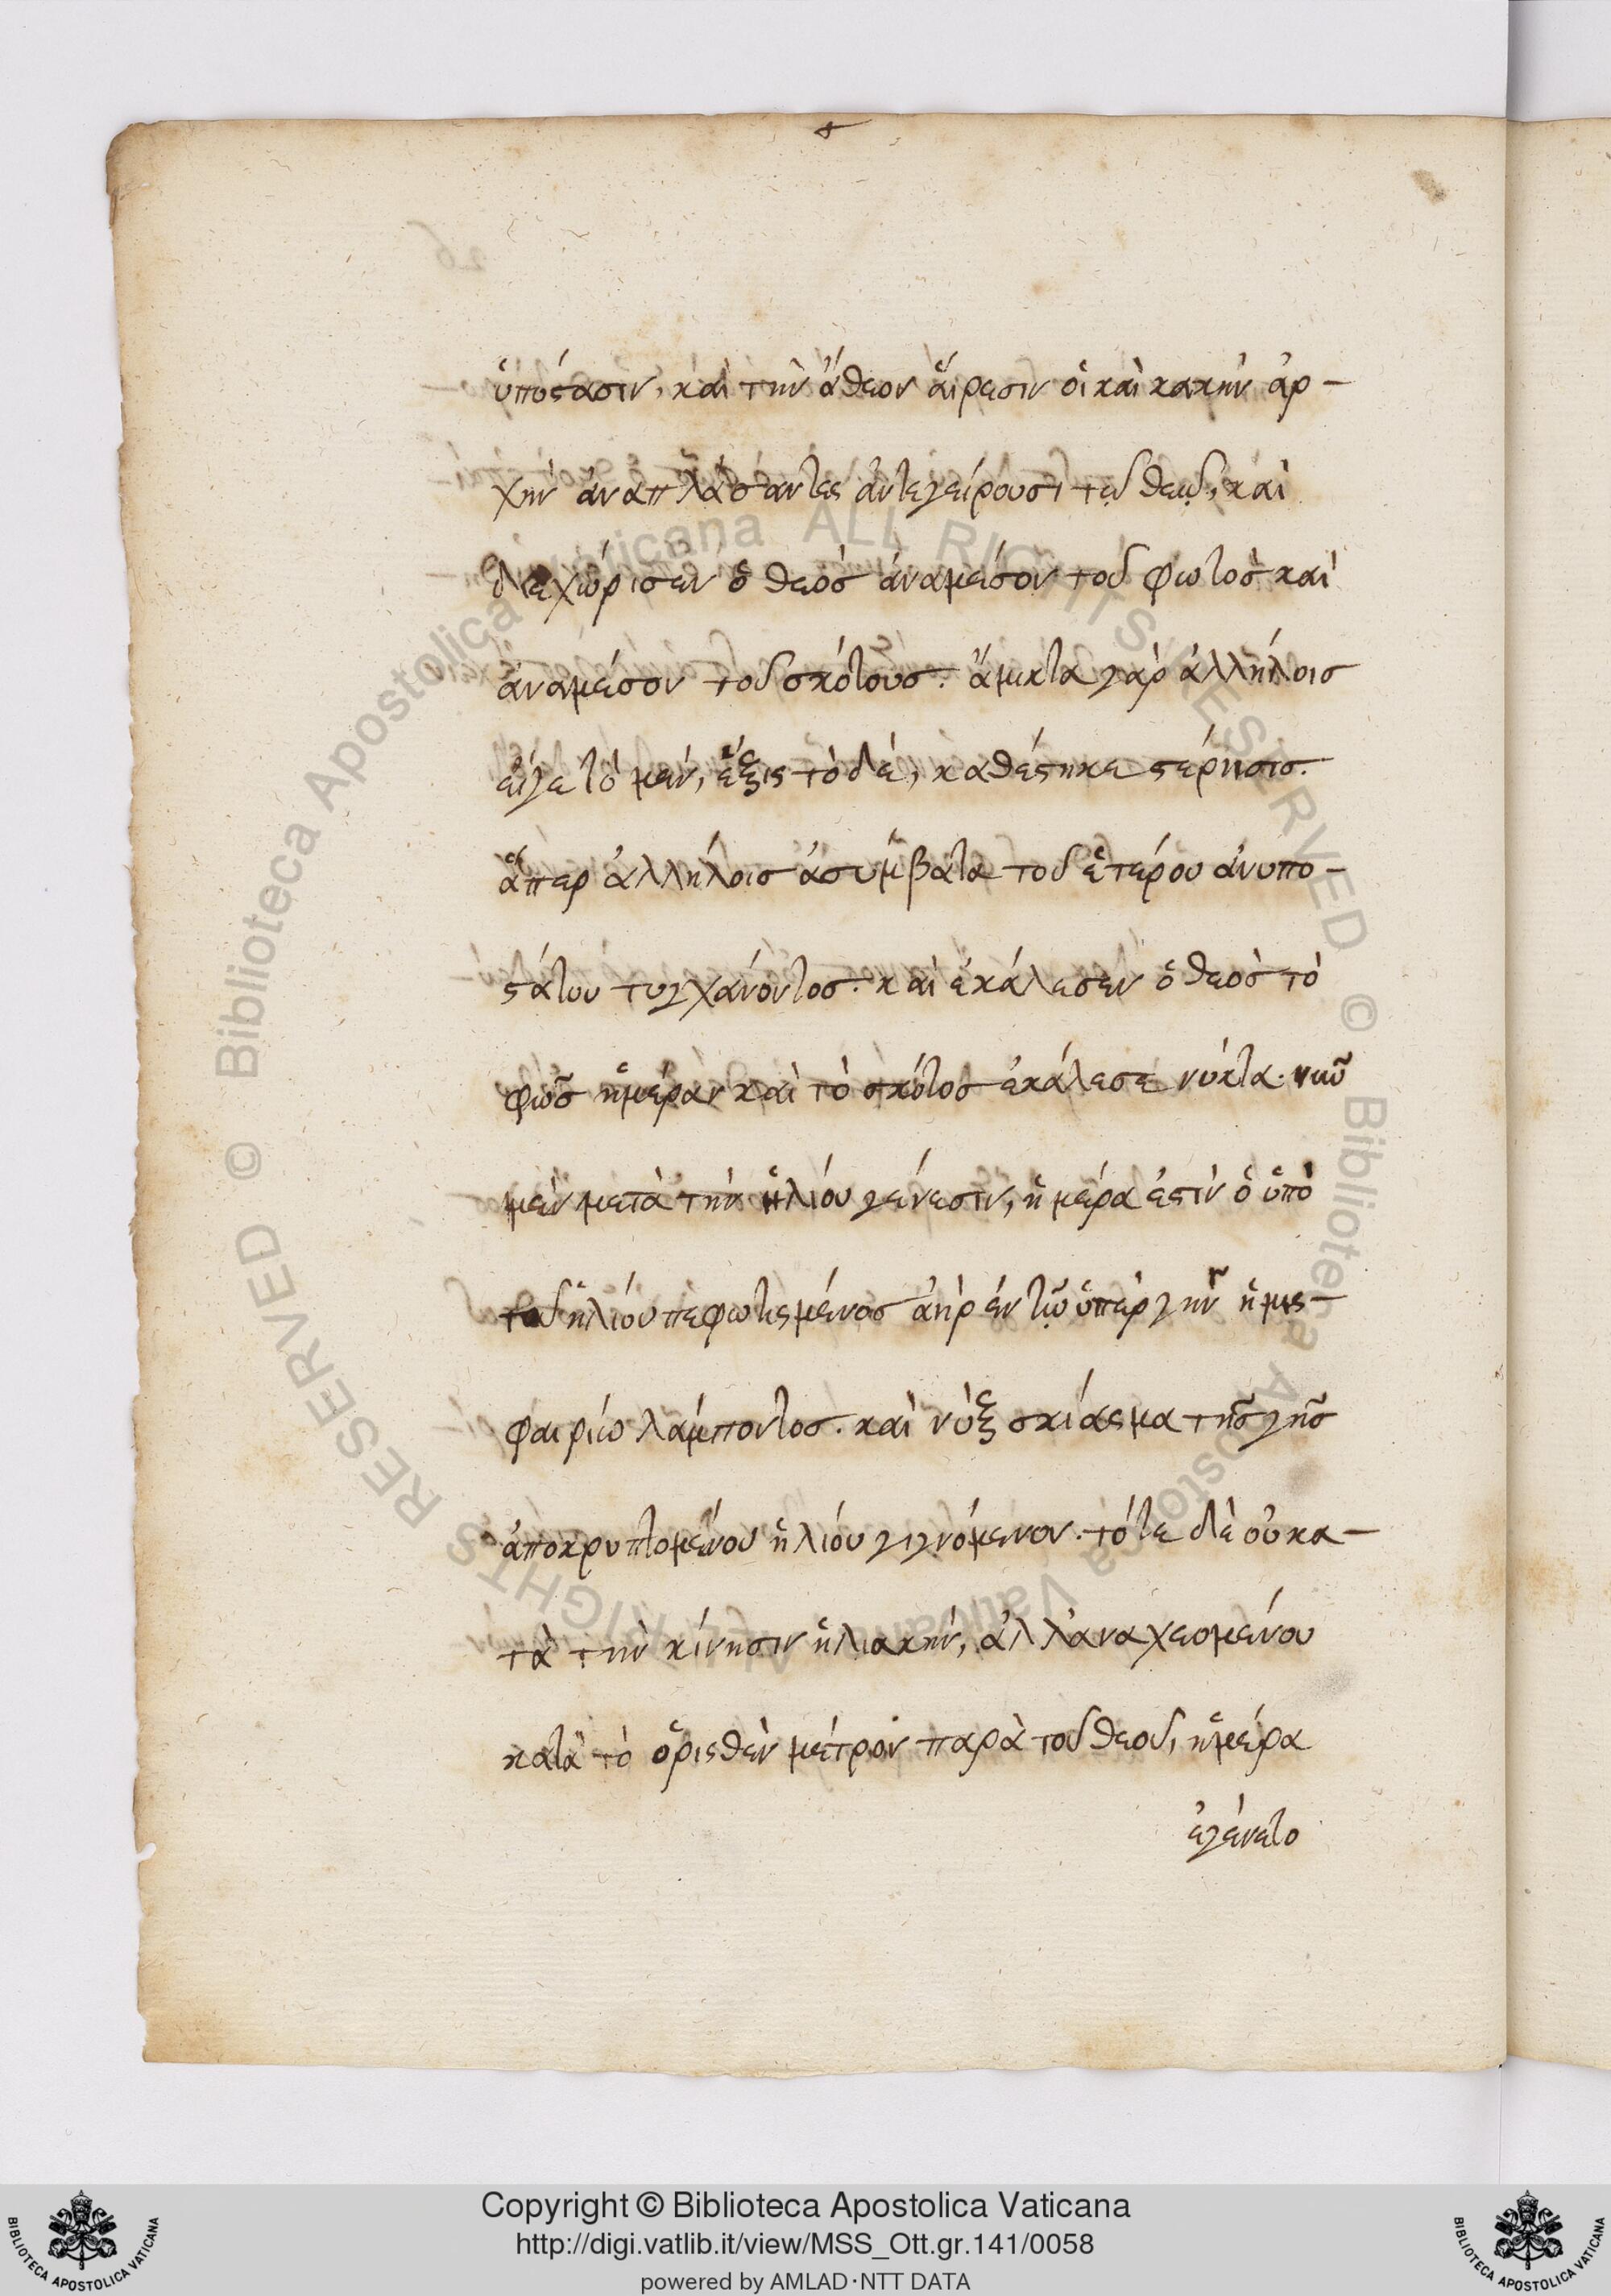 ὑπόστασιν, καὶ τὴν ἄθεον αἵρεσιν οἱ καὶ κακὴν ἀρ-
χὴν ἀναπλάσαντες ἀντεγείρουσι τῷ θεῷ, καὶ
διεχώρισεν ὁ θεός ἀναμέσον τοῦ φωτὸς καὶ
ἀναμέσον τοῦ σκότους. ἄμικτα γὰρ ἀλλήλοις
εἴγε τὸ μέν, ἕξις τὸ δέ, καθέστηκε στέρησις.
ἅπερ ἀλλήλοις ἀσύμβατα τοῦ ἑτέρου ἀνυπο-
στάτου τυγχάνοντος. καὶ ἐκάλεσεν ὁ θεὸς τὸ
φῶς ἡμέραν καὶ τὸ σκότος ἐκάλεσε νύκτα. νῦν
μὲν μετὰ τὴν ἡλίου γένεσιν, ἡμέρα ἐστὶν ὁ ὑπὸ
τοῦ ἡλίου πεφωτισμένος ἀὴρ ἐν τῷ ὑπὲρ γῆν ἡμισ-
φαιρίω λάμποντος. καὶ νὺξ σκίασμα τῆς γῆς
ἀποκρυπτομένου ἡλίου γιγνόμενον. τότε δὲ οὐ κα-
τὰ τὴν κίνησιν ἡλιακήν, ἀλλ' ἀναχεομένου
κατὰ τὸ ὁρισθὲν μέτρον παρὰ τοῦ θεοῦ, ἡμέρα
ἐγένετο
© Biblioteca Apostolica Vaticana ALL RIGHTS RESERVED © Biblioteca Apostolica Vaticana ALL RIGHTS RESERVED
BIBLIOTECA APOSTOLICA VATICANA
Copyright © Biblioteca Apostolica Vaticana
http://digi.vatlib.it/view/MSS_Ott.gr.141/0058
powered by AMLAD·NTT DATA
BIBLIOTECA APOSTOLICA VATICANA